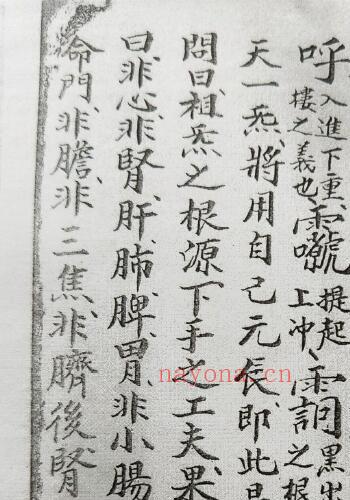 呼入進下重樓之義也提起上冲黑出之根
天一炁將用自己元辰即此
問曰祖炁之根源下手之工夫果
曰非心非腎肝肺脾胃非小腸
命門非膽非三焦非臍後腎
nayona.cn